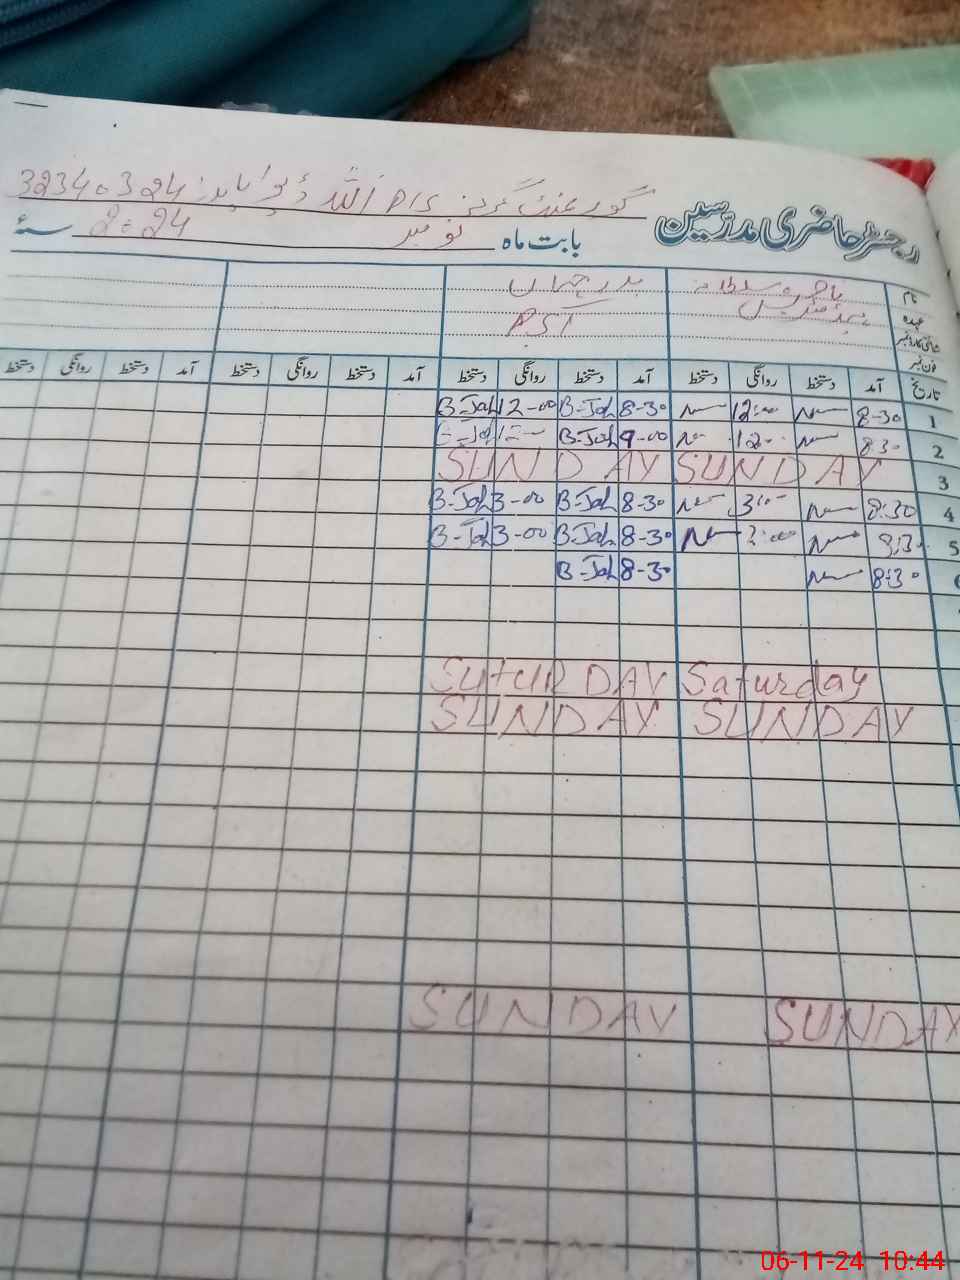 رجسٹر حاضری مدرسین گورنمنٹ گرلز P/S اللہ 32340324
بابت ماہ نومبر 2024 سنۂ
نام سلطانہ بدر جہاں
عہدہ ہیڈ مسٹریس PST
شناختی کارڈ نمبر
فون نمبر
تاریخ آمد دستخط روانگی دستخط آمد دستخط روانگی دستخط آمد دستخط روانگی دستخط آمد دستخط روانگی دستخط
1 8-30 12:00 8-30 B-Jah 12-00 B-Jah
2 830 120- 9-00 B-Jah 12- B-Jah
3 SUNDAY SUNDAY
4 8:30 8-30 B-Jah 3-00 B-Jah
5 8:30 8-30 B-Jah 3-00 B-Jah
6 8:30 8-30 B-Jah
Saturday SUTURDAY
SUNDAY SUNDAY
SUNDAY SUNDAY
06-11-24 10:44